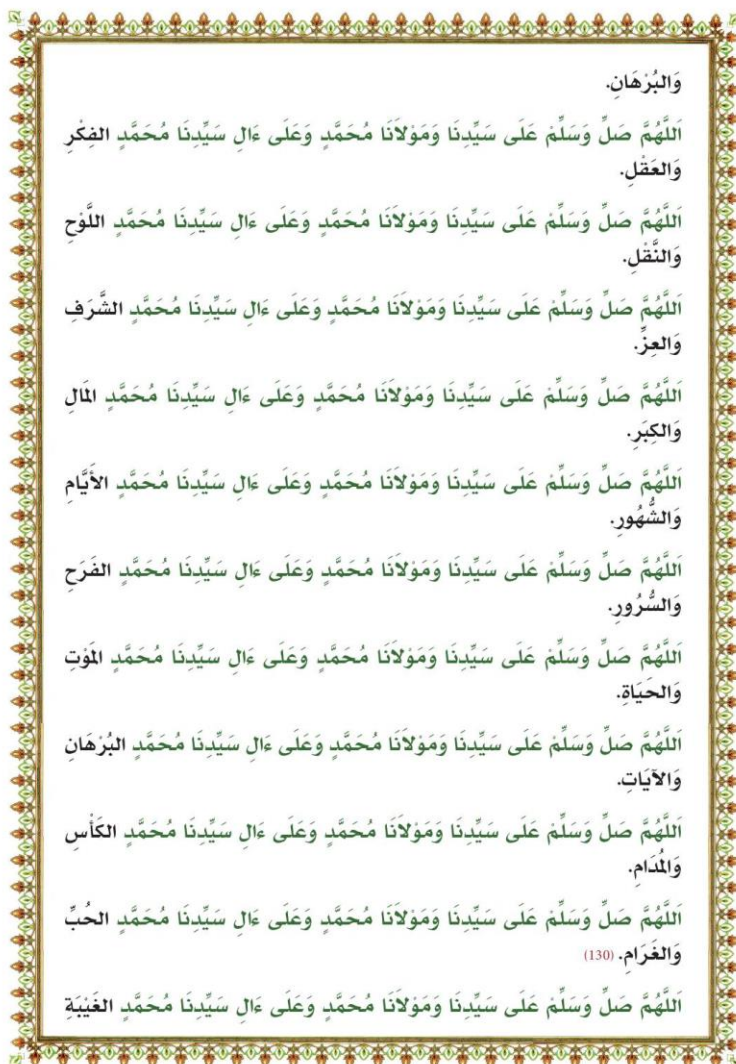 وَالبُرْهَانِ.
اَللَّهُمَّ صَلِّ وَسَلِّمْ عَلَى سَيِّدِنَا وَمَوْلاَنَا مُحَمَّدٍ وَعَلَى ءَالِ سَيِّدِنَا مُحَمَّدٍ الفِكْرِ
وَالعَقْلِ.
اَللَّهُمَّ صَلِّ وَسَلِّمْ عَلَى سَيِّدِنَا وَمَوْلاَنَا مُحَمَّدٍ وَعَلَى ءَالِ سَيِّدِنَا مُحَمَّدٍ اللَّوْحِ
وَالنَّقْلِ.
اَللَّهُمَّ صَلِّ وَسَلِّمْ عَلَى سَيِّدِنَا وَمَوْلاَنَا مُحَمَّدٍ وَعَلَى ءَالِ سَيِّدِنَا مُحَمَّدٍ الشَّرَفِ
وَالعِزِّ.
اَللَّهُمَّ صَلِّ وَسَلِّمْ عَلَى سَيِّدِنَا وَمَوْلاَنَا مُحَمَّدٍ وَعَلَى ءَالِ سَيِّدِنَا مُحَمَّدٍ المَالِ
وَالكِبَرِ.
اَللَّهُمَّ صَلِّ وَسَلِّمْ عَلَى سَيِّدِنَا وَمَوْلاَنَا مُحَمَّدٍ وَعَلَى ءَالِ سَيِّدِنَا مُحَمَّدٍ الأَيَّامِ
وَالشُّهُورِ.
اَللَّهُمَّ صَلِّ وَسَلِّمْ عَلَى سَيِّدِنَا وَمَوْلاَنَا مُحَمَّدٍ وَعَلَى ءَالِ سَيِّدِنَا مُحَمَّدٍ الفَرَحِ
وَالسُّرُورِ.
اَللَّهُمَّ صَلِّ وَسَلِّمْ عَلَى سَيِّدِنَا وَمَوْلاَنَا مُحَمَّدٍ وَعَلَى ءَالِ سَيِّدِنَا مُحَمَّدٍ المَوْتِ
وَالحَيَاةِ.
اَللَّهُمَّ صَلِّ وَسَلِّمْ عَلَى سَيِّدِنَا وَمَوْلاَنَا مُحَمَّدٍ وَعَلَى ءَالِ سَيِّدِنَا مُحَمَّدٍ البُرْهَانِ
وَالآيَاتِ.
اَللَّهُمَّ صَلِّ وَسَلِّمْ عَلَى سَيِّدِنَا وَمَوْلاَنَا مُحَمَّدٍ وَعَلَى ءَالِ سَيِّدِنَا مُحَمَّدٍ الكَأْسِ
وَالمُدَامِ.
اَللَّهُمَّ صَلِّ وَسَلِّمْ عَلَى سَيِّدِنَا وَمَوْلاَنَا مُحَمَّدٍ وَعَلَى ءَالِ سَيِّدِنَا مُحَمَّدٍ الحُبِّ
وَالغَرَامِ. (130)
اَللَّهُمَّ صَلِّ وَسَلِّمْ عَلَى سَيِّدِنَا وَمَوْلاَنَا مُحَمَّدٍ وَعَلَى ءَالِ سَيِّدِنَا مُحَمَّدٍ الغَيْبَةِ